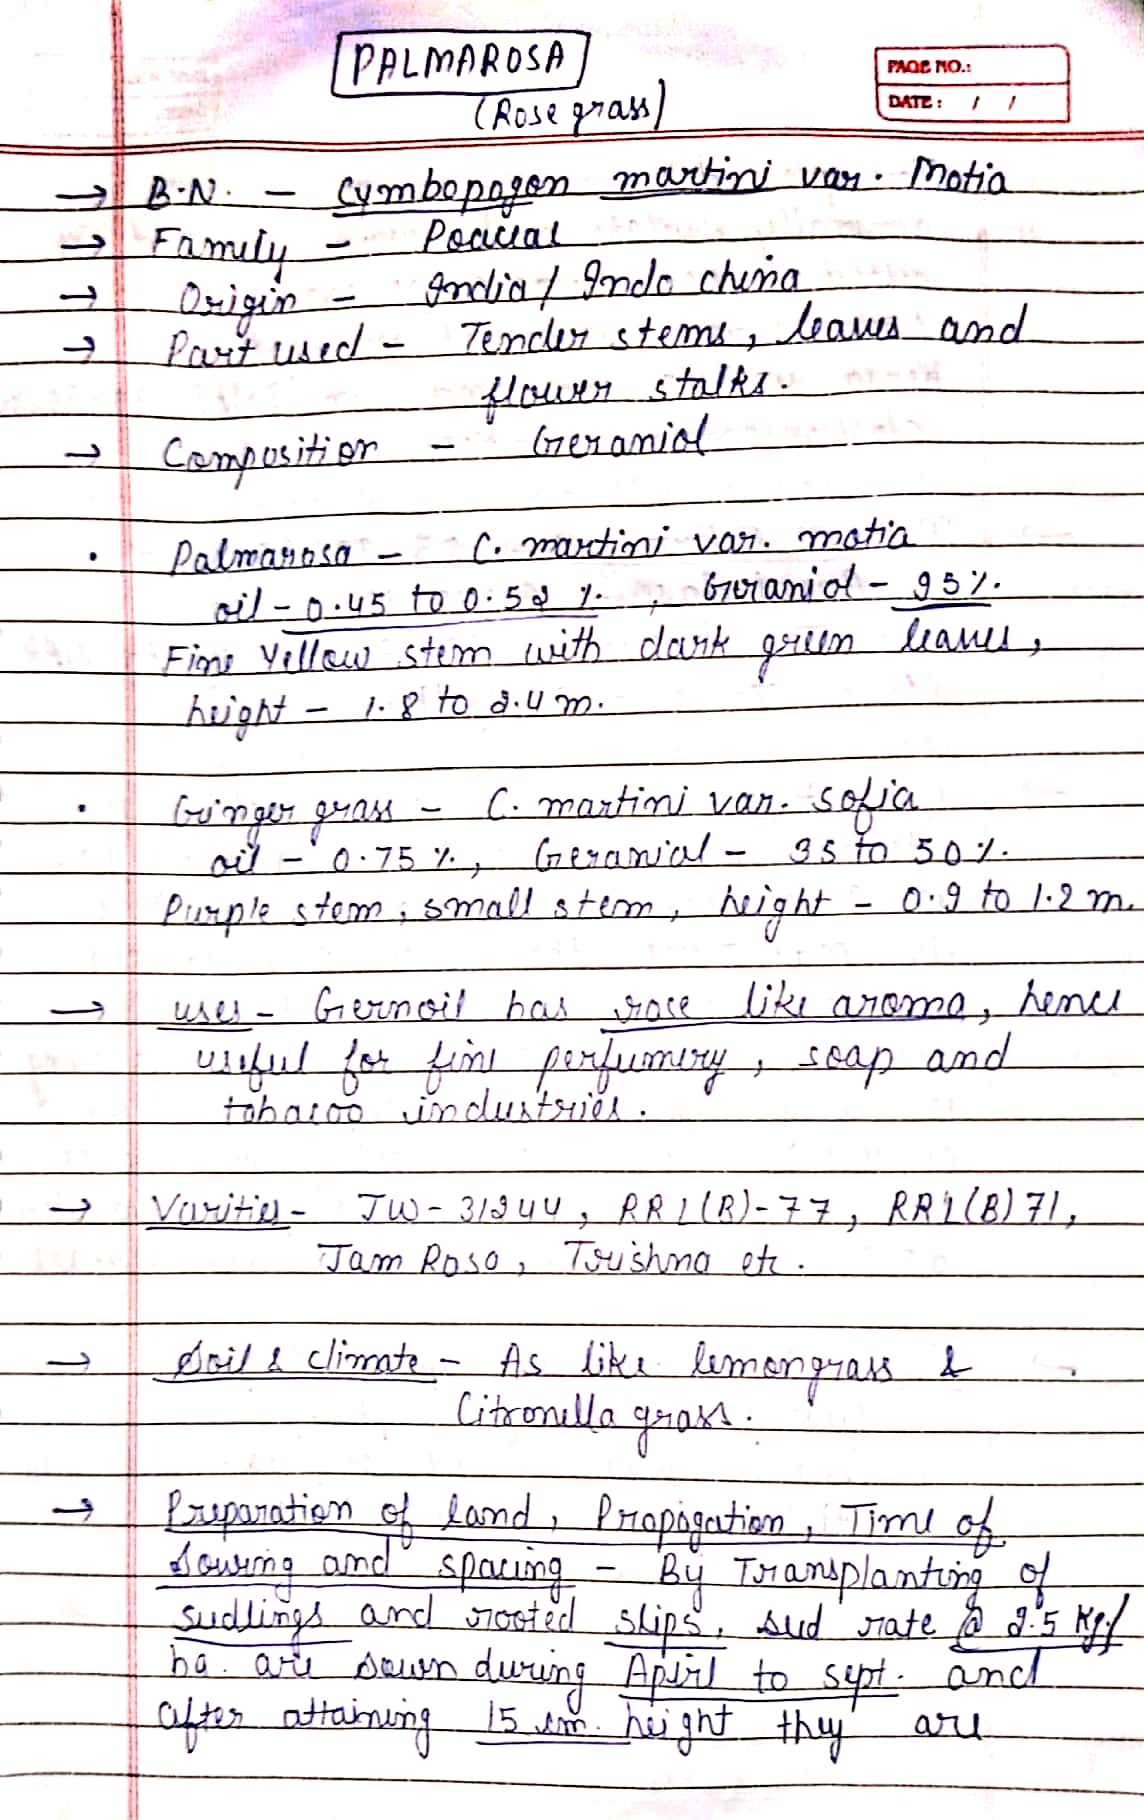 PALMAROSA
(Rose grass)
PAGE NO.:
DATE: / /
→ B.N. - Cymbopogon martini var. Motia
→ Family - Poaceae
→ Origin - India / Indo china
→ Part used - Tender stems, leaves and
flower stalks.
→ Composition - Geraniol
• Palmarosa - C. martini var. motia
oil - 0.45 to 0.52 %. , Geraniol - 95%.
Fine Yellow stem with dark green leaves,
height - 1.8 to 2.4 m.
• Ginger grass - C. martini var. sofia
oil - 0.75 %., Geraniol - 35 to 50%.
Purple stem, small stem, height - 0.9 to 1.2 m.
→ uses - Gernoil has rose like aroma, hence
useful for fine perfumery, soap and
tobacoo industries.
→ Varities - IW-31244, RRL(B)-77, RRL(B)71,
Jam Rosa, Trishna etc.
→ Soil & climate - As like lemongrass &
Citronella grass.
→ Preparation of land, Propogation, Time of
Sowing and spacing - By Transplanting of
seedlings and rooted slips, seed rate @ 2.5 Kg/
ha. are sown during April to sept. and
after attaining 15 cm. height they are